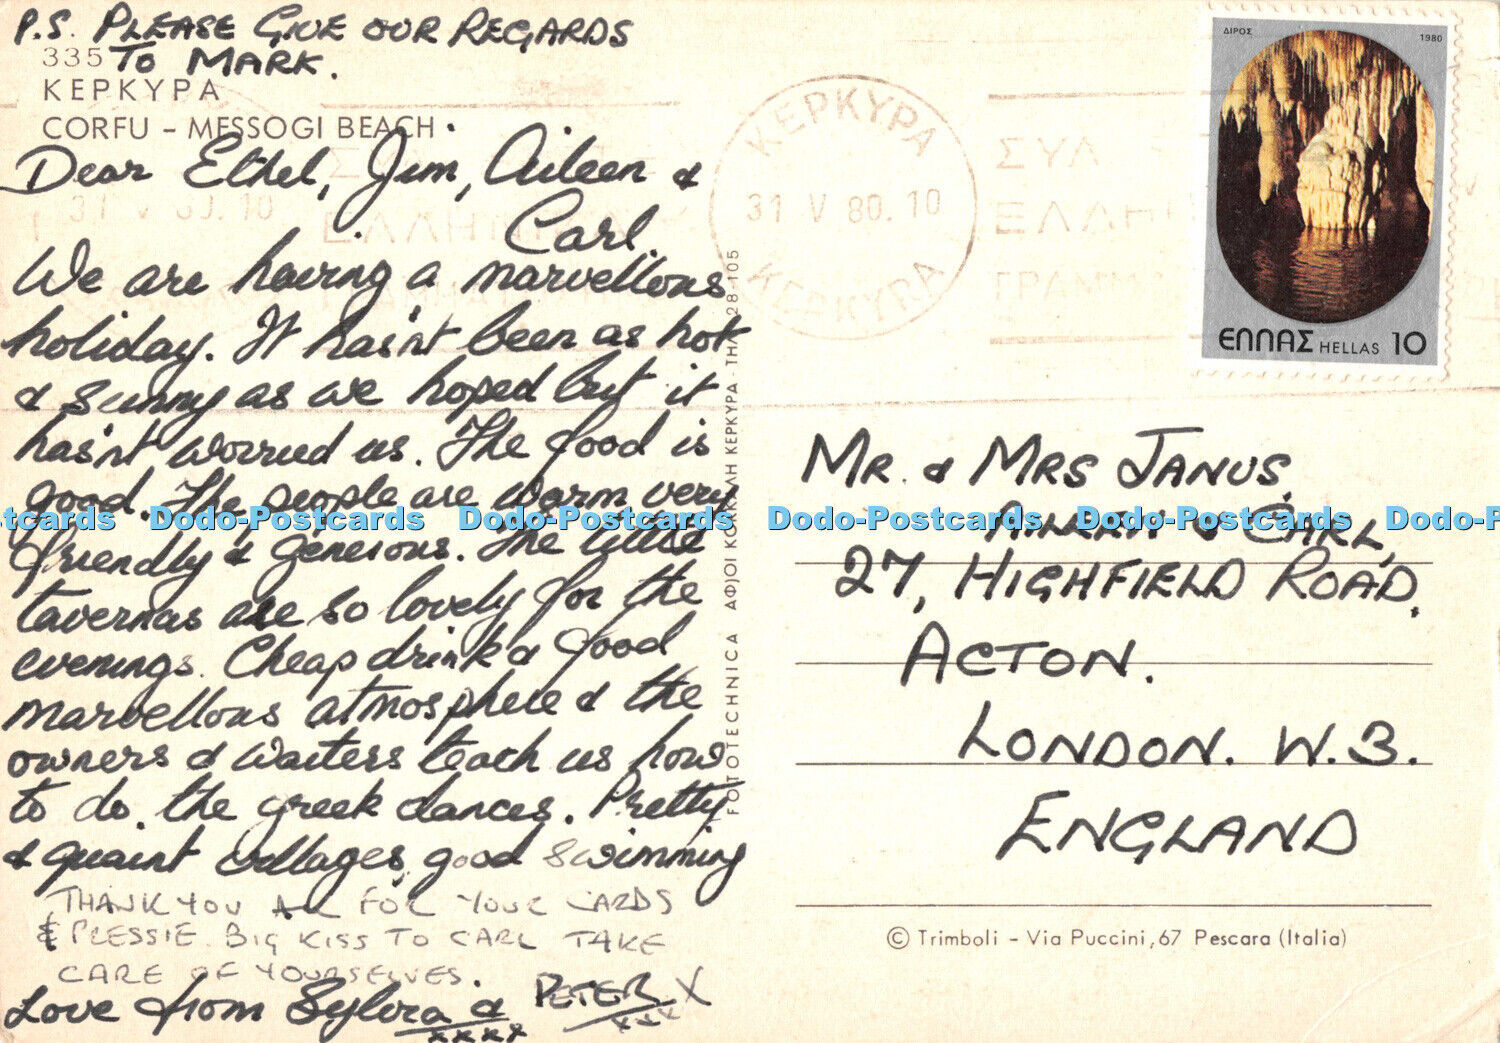 P.S. PLEASE GIVE OUR REGARDS
TO MARK.
335
ΚΕΡΚΥΡΑ
CORFU - MESSOGI BEACH
Dear Ethel, Jim, Aileen &
Carl.
We are having a marvellous
holiday. It has'nt been as hot
& sunny as we hoped but it
has'nt worried us. The food is
good. The people are warm very
friendly & generous. The little
tavernas are so lovely for the
evenings. Cheap drink & food
marvellous atmosphere & the
owners & waiters teach us how
to do the greek dances. Pretty
& quaint villages, good swimming
THANK YOU ALL FOR YOUR CARDS
& PRESSIE. BIG KISS TO CARL TAKE
CARE OF YOURSELVES.
Love from Sylvia & PETER X
xxxx xxx
FOTOTECHNICA ΑΦΙΟΙ ΚΟΚΚΑΛΗ ΚΕΡΚΥΡΑ · ΤΗΛ 28-105
ΚΕΡΚΥΡΑ
31 V 80.10
ΚΕΡΚΥΡΑ
ΣΥΛ
ΕΛΛΗ
ΓΡΑΜΜ
31 V 80.10
ΔΙΡΟΣ 1980
ΕΛΛΑΣ HELLAS 10
MR. & MRS JANUS,
AILEEN & CARL,
27, HIGHFIELD ROAD,
ACTON.
LONDON. W.3.
ENGLAND
© Trimboli - Via Puccini, 67 Pescara (Italia)
tcards Dodo-Postcards Dodo-Postcards Dodo-Postcards Dodo-Postcards Dodo-P